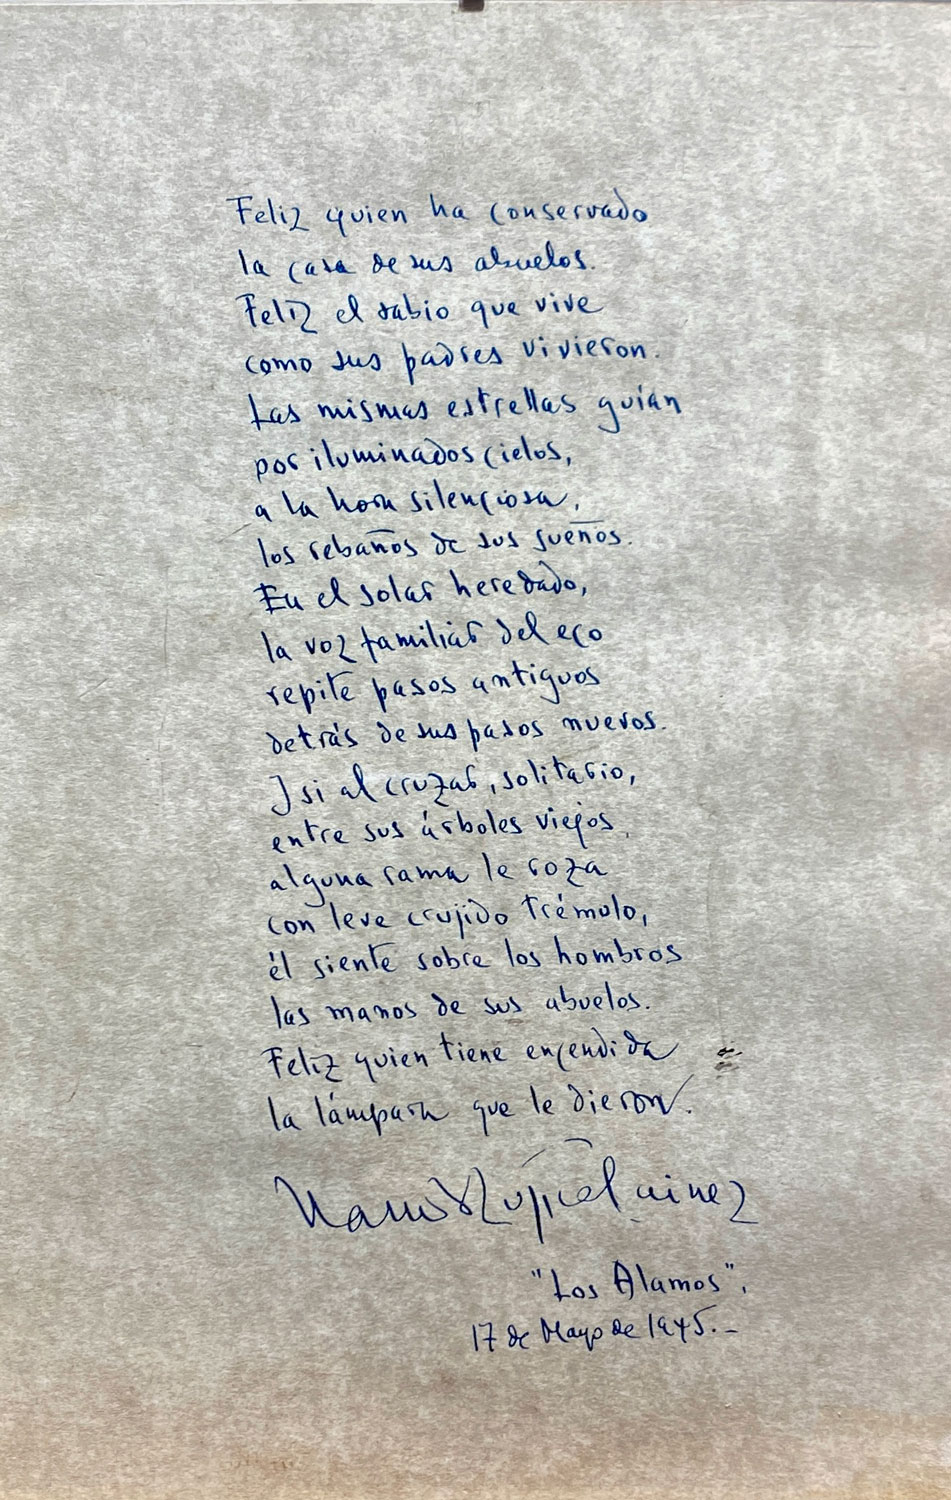 Feliz quien ha conservado
la casa de sus abuelos.
Feliz el sabio que vive
como sus padres vivieron.
Las mismas estrellas guían
por iluminados cielos,
a la hora silenciosa,
los rebaños de sus sueños.
En el solar heredado,
la voz familiar del eco
repite pasos antiguos
detrás de sus pasos nuevos.
Y si al cruzar, solitario,
entre sus árboles viejos,
alguna rama le roza
con leve crujido trémulo,
él siente sobre los hombros
las manos de sus abuelos.
Feliz quien tiene encendida
la lámpara que le dieron.
Manuel Mujica Lainez
"Los Alamos",
17 de Mayo de 1945.-